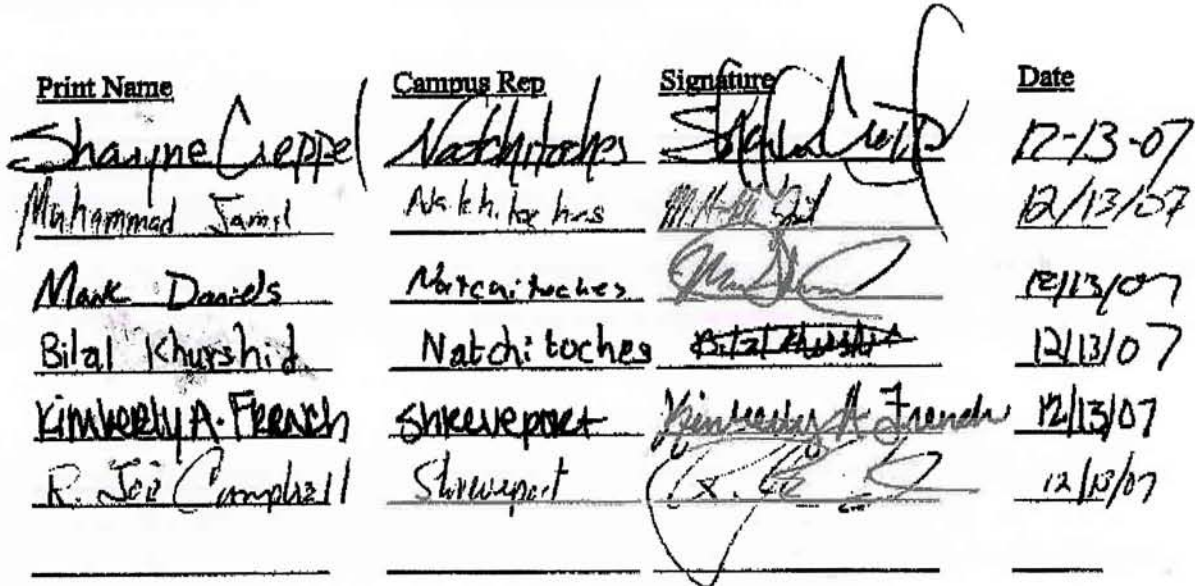 Print Name Campus Rep Signature Date
Shayne Creppel Natchitoches 12-13-07
Muhammad Jamil Natchitoches 12/13/07
Mark Daniels Natchitoches 12/13/07
Bilal Khurshid Natchitoches Bilal Khurshid 12/13/07
Kimberely A. French Shreveport Kimberely A. French 12/13/07
R. Joe Campbell Shreveport 12/13/07